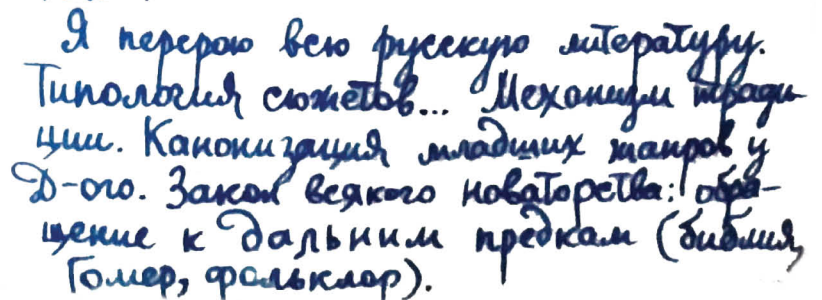 Я перерою всю русскую литературу.
Типология сюжетов... Механизм тради-
ции. Канонизация младших жанров у
Д-ого. Закон всякого новаторства: обра-
щение к дальним предкам (библия,
Гомер, фольклор).